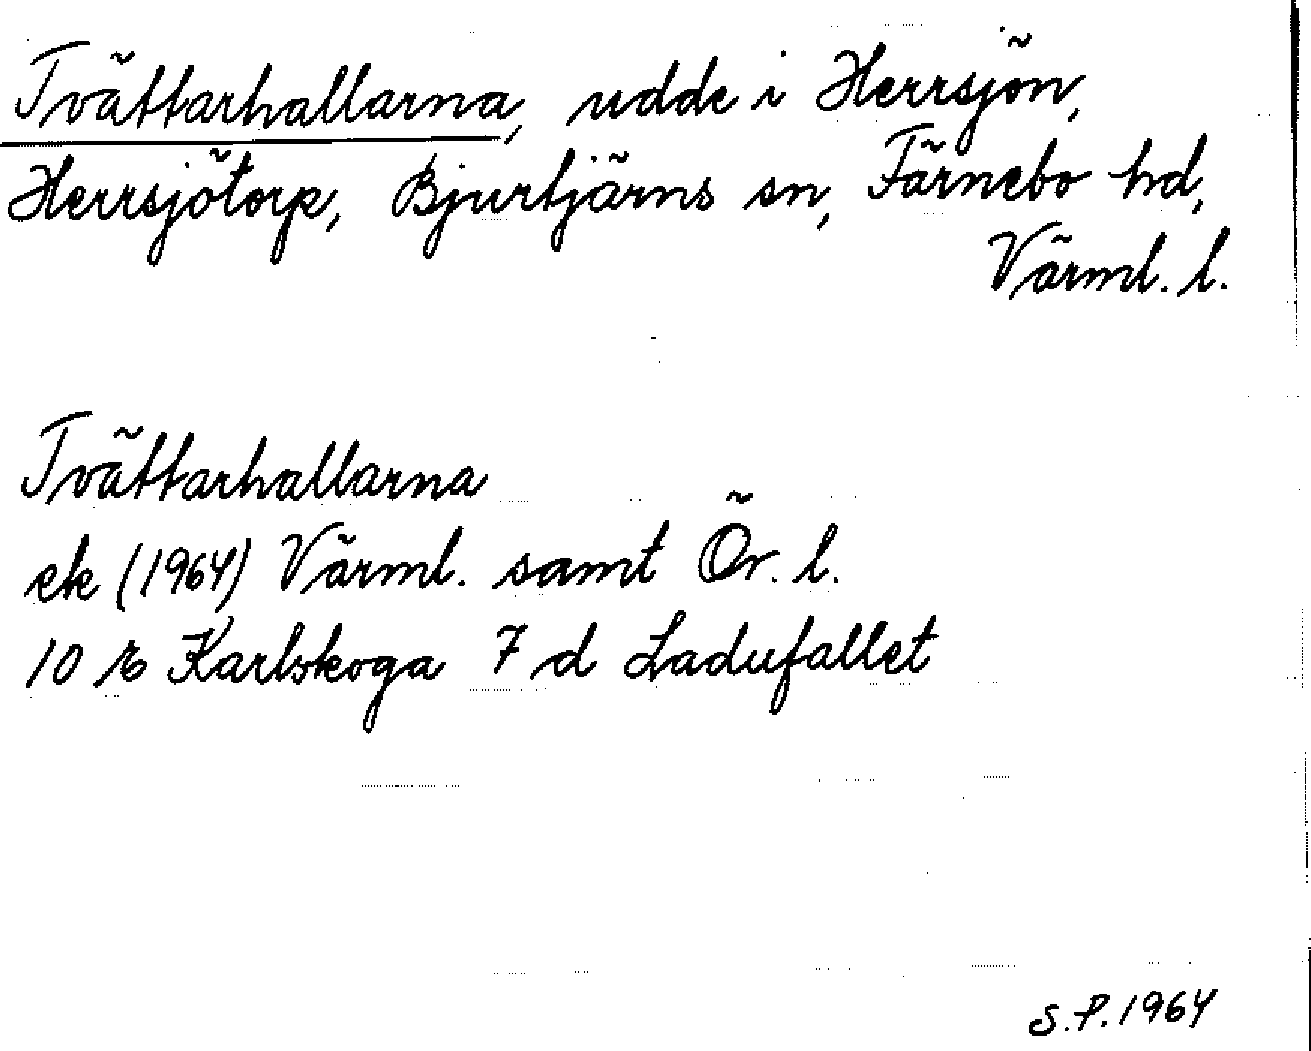 Tvättarhallarna, udde i Herrsjön,
Herrsjötorp, Bjurtjärns sn, Färnebo hd,
Värml. l.
Tvättarhallarna
ek (1964) Värml. samt Ör. l.
10 E Karlskoga 7 d Ladufallet
S.P. 1964